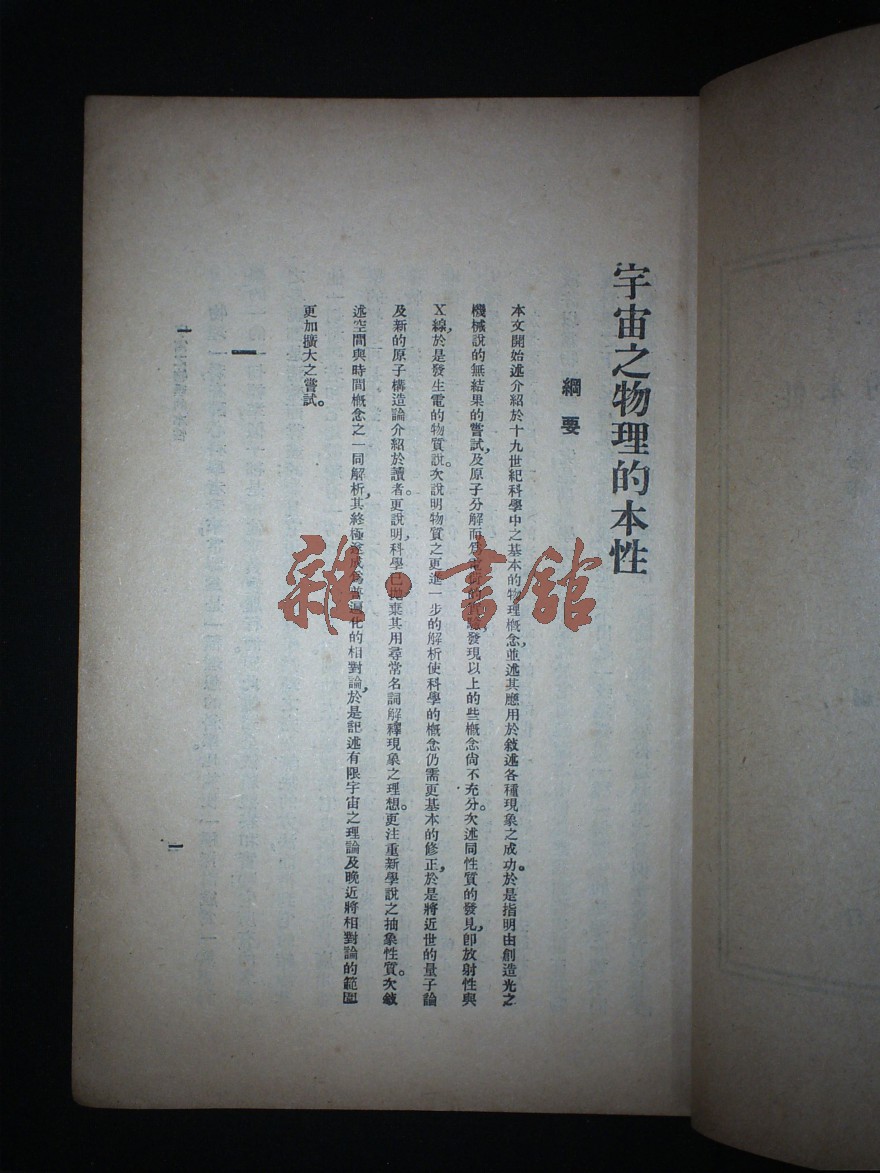 宇宙之物理的本性
綱要
本文開始述介紹於十九世紀科學中之基本的物理概念,並述其應用於敍述各種現象之成功。於是指明由創造光之
機械說的無結果的嘗試,及原子分解而爲電荷的實驗發現以上的些概念尙不充分。次述同性質的發見,卽放射性與
X線,於是發生電的物質說。次說明物質之更進一步的解析使科學的概念仍需更基本的修正,於是將近世的量子論
及新的原子構造論介紹於讀者。更說明,科學已拋棄其用尋常名詞解釋現象之理想。更注重新學說之抽象性質。次敍
述空間與時間概念之一同解析,其終極遂成爲普遍化的相對論,於是記述有限宇宙之理論及晚近將相對論的範圍
更加擴大之嘗試。
一
一
雜·書館